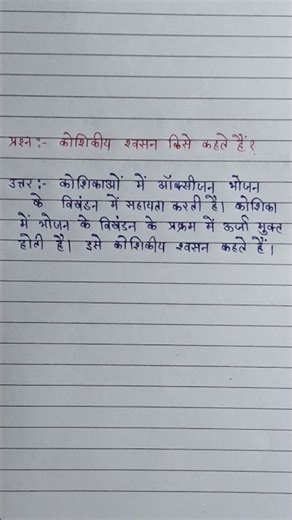 प्रश्न :- कोशिकीय श्वसन किसे कहते हैं?
उत्तर :- कोशिकाओं में ऑक्सीजन भोजन
के विखंडन में सहायता करती है। कोशिका
में भोजन के विखंडन के प्रक्रम में ऊर्जा मुक्त
होती है। इसे कोशिकीय श्वसन कहते हैं।